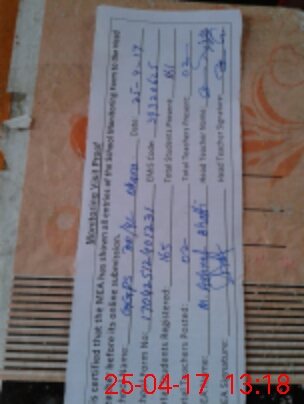 Monitoring Visit Proof
is certified that the MEA has shown all entries of the School Monitoring Form to the Head
before its online submission.
Name: Date: 25-9-17
Form No: EMIS Code: 39320625
Students Registered: 165 Total Students Present: 161
Teachers Posted: 02 Total Teachers Present: 02
Name: M. Head Teacher Name:
EA Signature: Head Teacher Signature:
25-04-17 13:18